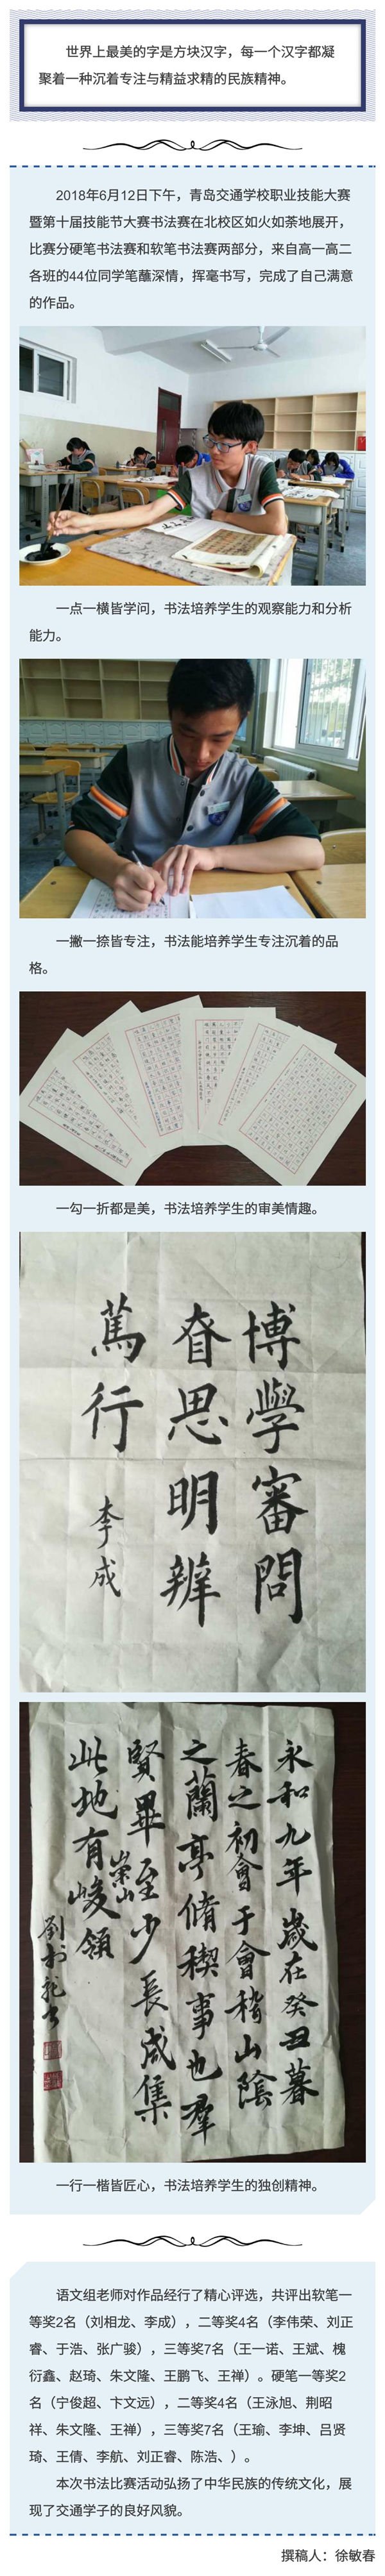 世界上最美的字是方块汉字，每一个汉字都凝
聚着一种沉着专注与精益求精的民族精神。
2018年6月12日下午，青岛交通学校职业技能大赛
暨第十届技能节大赛书法赛在北校区如火如荼地展开，
比赛分硬笔书法赛和软笔书法赛两部分，来自高一高二
各班的44位同学笔蘸深情，挥毫书写，完成了自己满意
的作品。
一点一横皆学问，书法培养学生的观察能力和分析
能力。
一撇一捺皆专注，书法能培养学生专注沉着的品
格。
一勾一折都是美，书法培养学生的审美情趣。
博學審問
眘思明辨
篤行
李成
永和九年歲在癸丑暮
春之初會于會稽山陰
之蘭亭脩稧事也羣
賢畢至少長咸集
此地有崇山峻領
一行一楷皆匠心，书法培养学生的独创精神。
语文组老师对作品经行了精心评选，共评出软笔一
等奖2名（刘相龙、李成），二等奖4名（李伟荣、刘正
睿、于浩、张广骏），三等奖7名（王一诺、王斌、槐
衍鑫、赵琦、朱文隆、王鹏飞、王禅）。硬笔一等奖2
名（宁俊超、卞文远），二等奖4名（王泳旭、荆昭
祥、朱文隆、王禅），三等奖7名（王瑜、李坤、吕贤
琦、王倩、李航、刘正睿、陈浩、）。
本次书法比赛活动弘扬了中华民族的传统文化，展
现了交通学子的良好风貌。
撰稿人：徐敏春